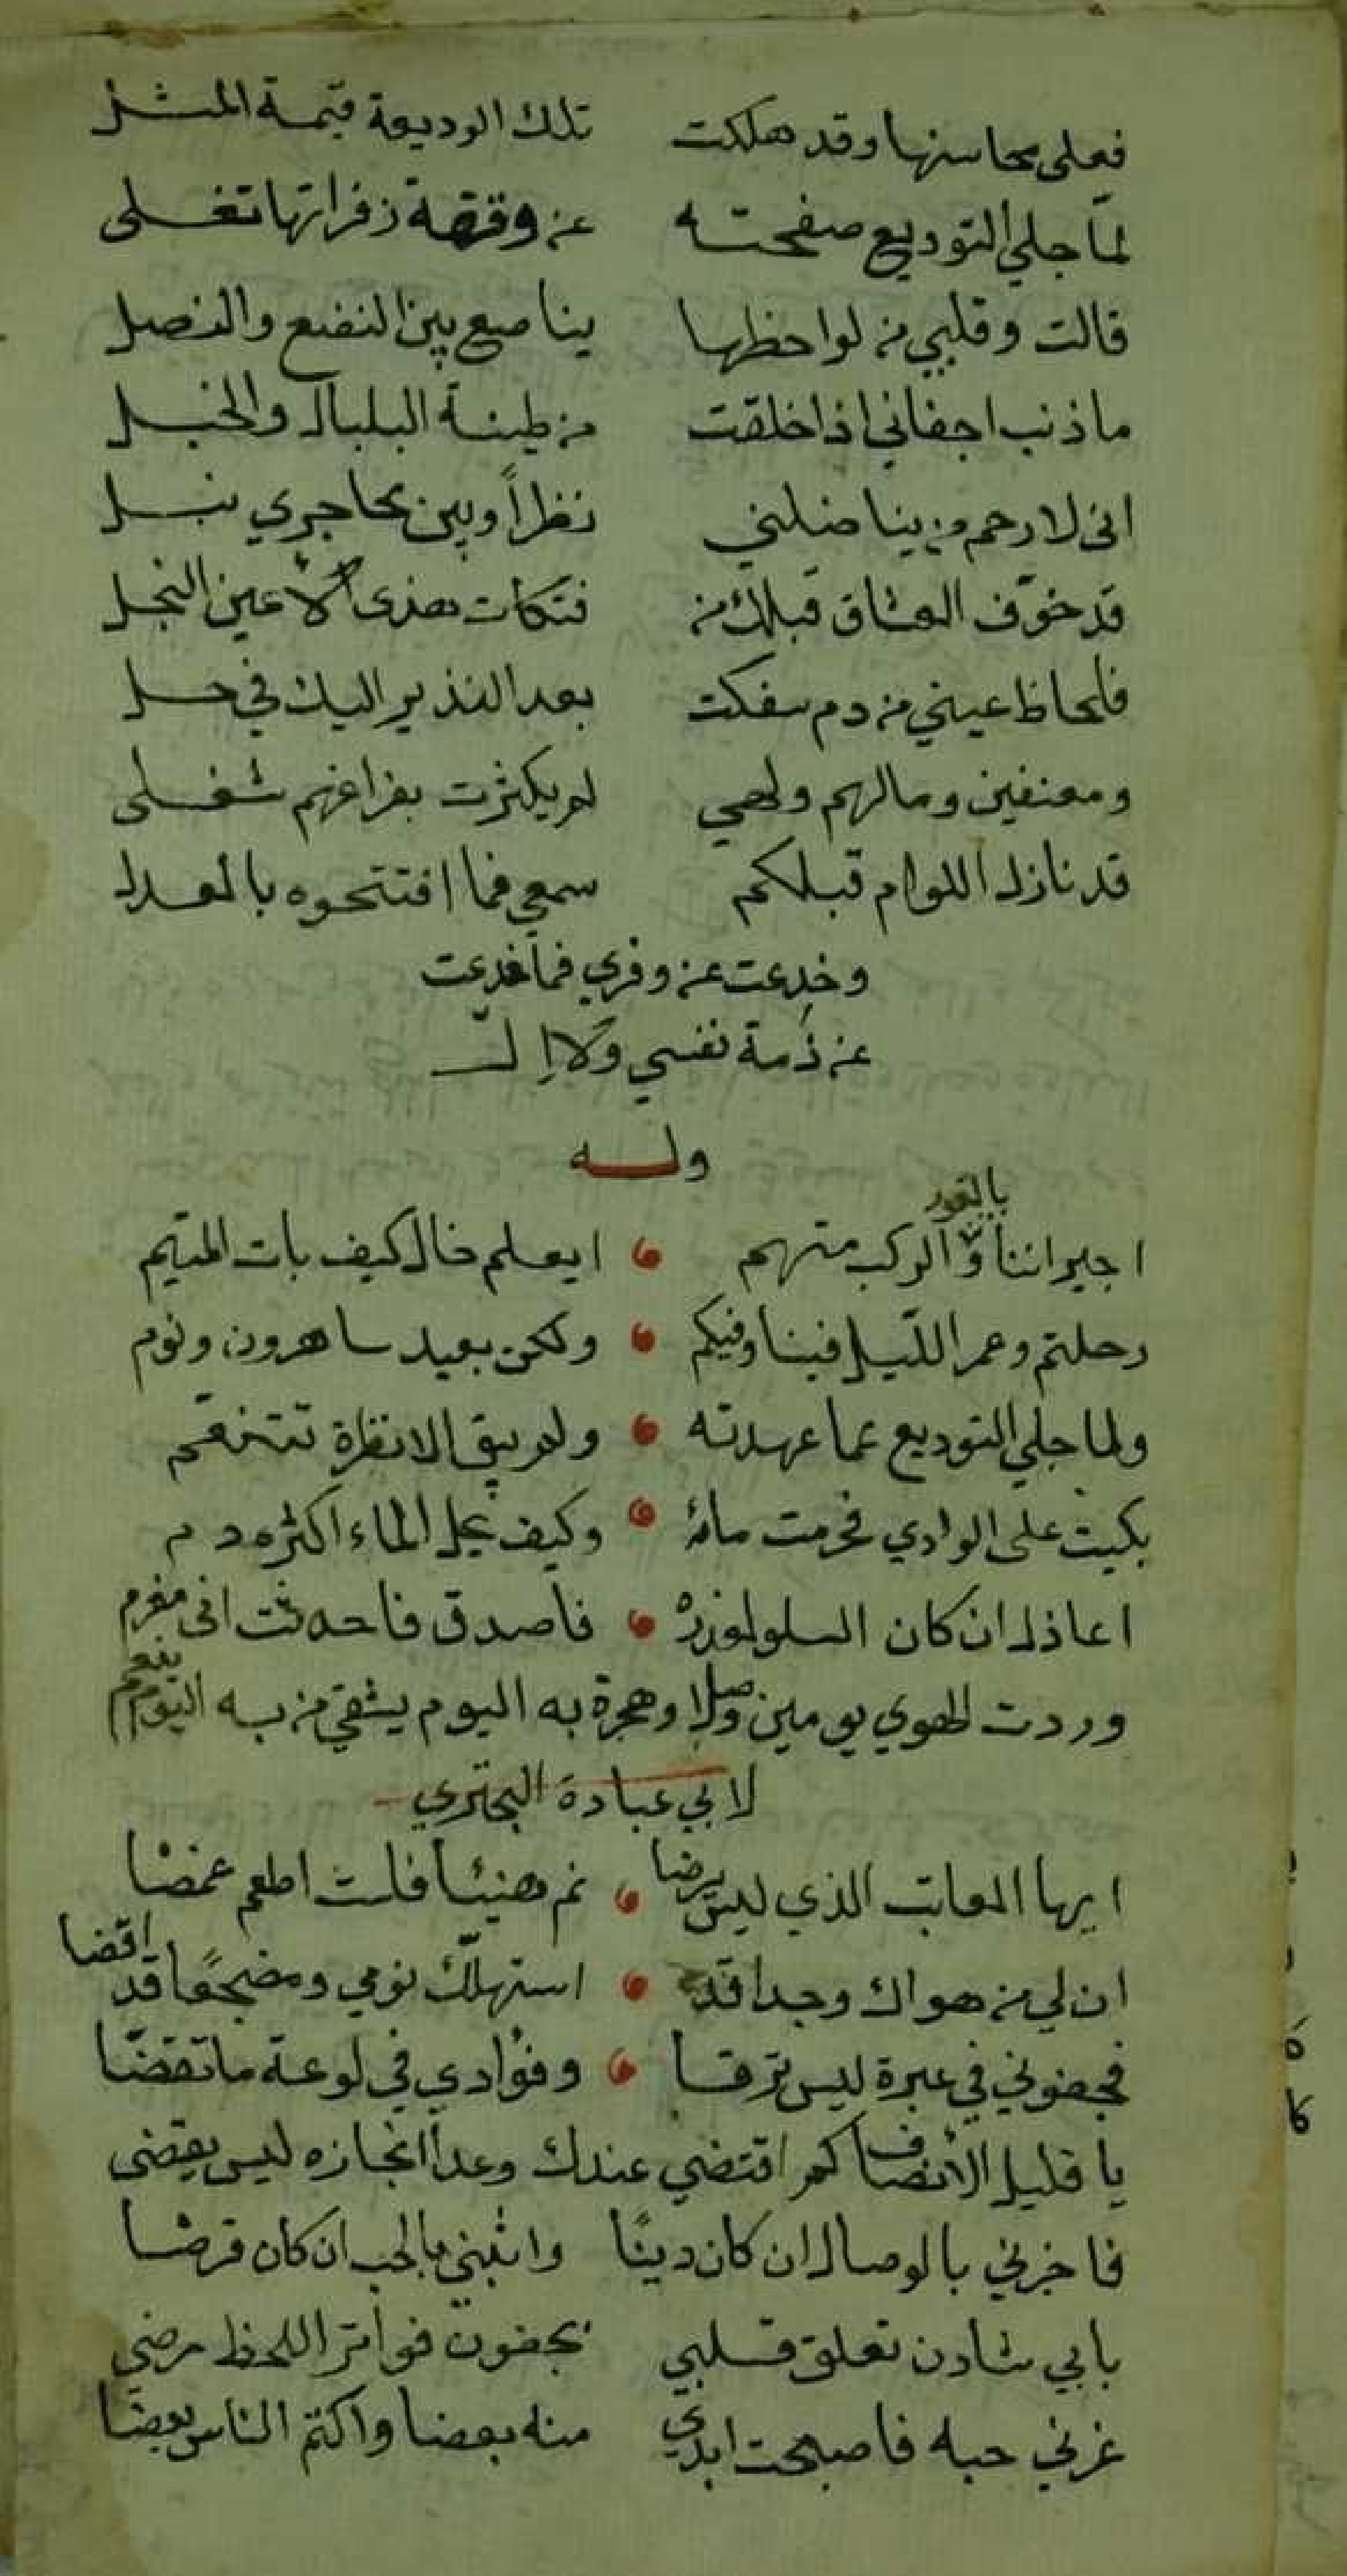 فعلى محاسنها وقد هلكت تلك الوديعة قيمة المثل
لما جلي التوديع صفحته عن وقفة زفراتها تغلى
قالت وقلبي من لواحظها ينا صيع بين النضع والنصل
ما ذنب اجفاني اذا خلقت من طينة البلبال والخبل
انى لارحم من ينا ضلني نظراً وبين محاجري نبل
قد خوّف العشاق قبلك من فتكات هذى الاعين النجل
فلحاظ عيني من دم سفكت بعد النذير اليك في حل
ومعنفين وما لهم ولهي لم يكترث بفراغهم شغلى
قد نازل اللوام قبلكم سمعي فما افتتحوه بالعدل
وخدعت عن وفري فما خدعت
عن ذمة نفسي ولا إلّ
وله
اجيراننا بالغور والركب متهم ايعلم خال كيف بات المتيم
رحلتم وعمر الليل فينا وفيكم ولكن بعيد ساهرون ونوم
ولما جلي التوديع عما عهدته ولم يبق الا نظرة تتغنم
بكيت على الوادي فحرمت ماءه وكيف يحل الماء اكثره دم
اعاذل ان كان السلو لغدرة فاصدق فاحدثت انى مغرم
وردت الهوي يومين وصلا وهجرة به اليوم يشقي من به اليوم ينعم
لابي عبادة البحتري
ايها العاتب الذي ليس يرضا نم هنيئا فلست اطعم غمضا
ان لي من هواك وجدا قد استهلك نومي ومضجعًا قد اقضا
فجفوني في عبرة ليس ترقا وفؤادي في لوعة ما تقضّا
يا قليل الأنصاف كم اقتضي عندك وعداً انجازه ليس يقضى
فاخزني بالوصال ان كان دينًا واثبني بالحب ان كان قرضا
بابي شادن تعلق قلبي بجفون فواتر اللحظ مرضي
غرني حبه فاصبحت ابدي منه بعضا واكتم الناس بعضا